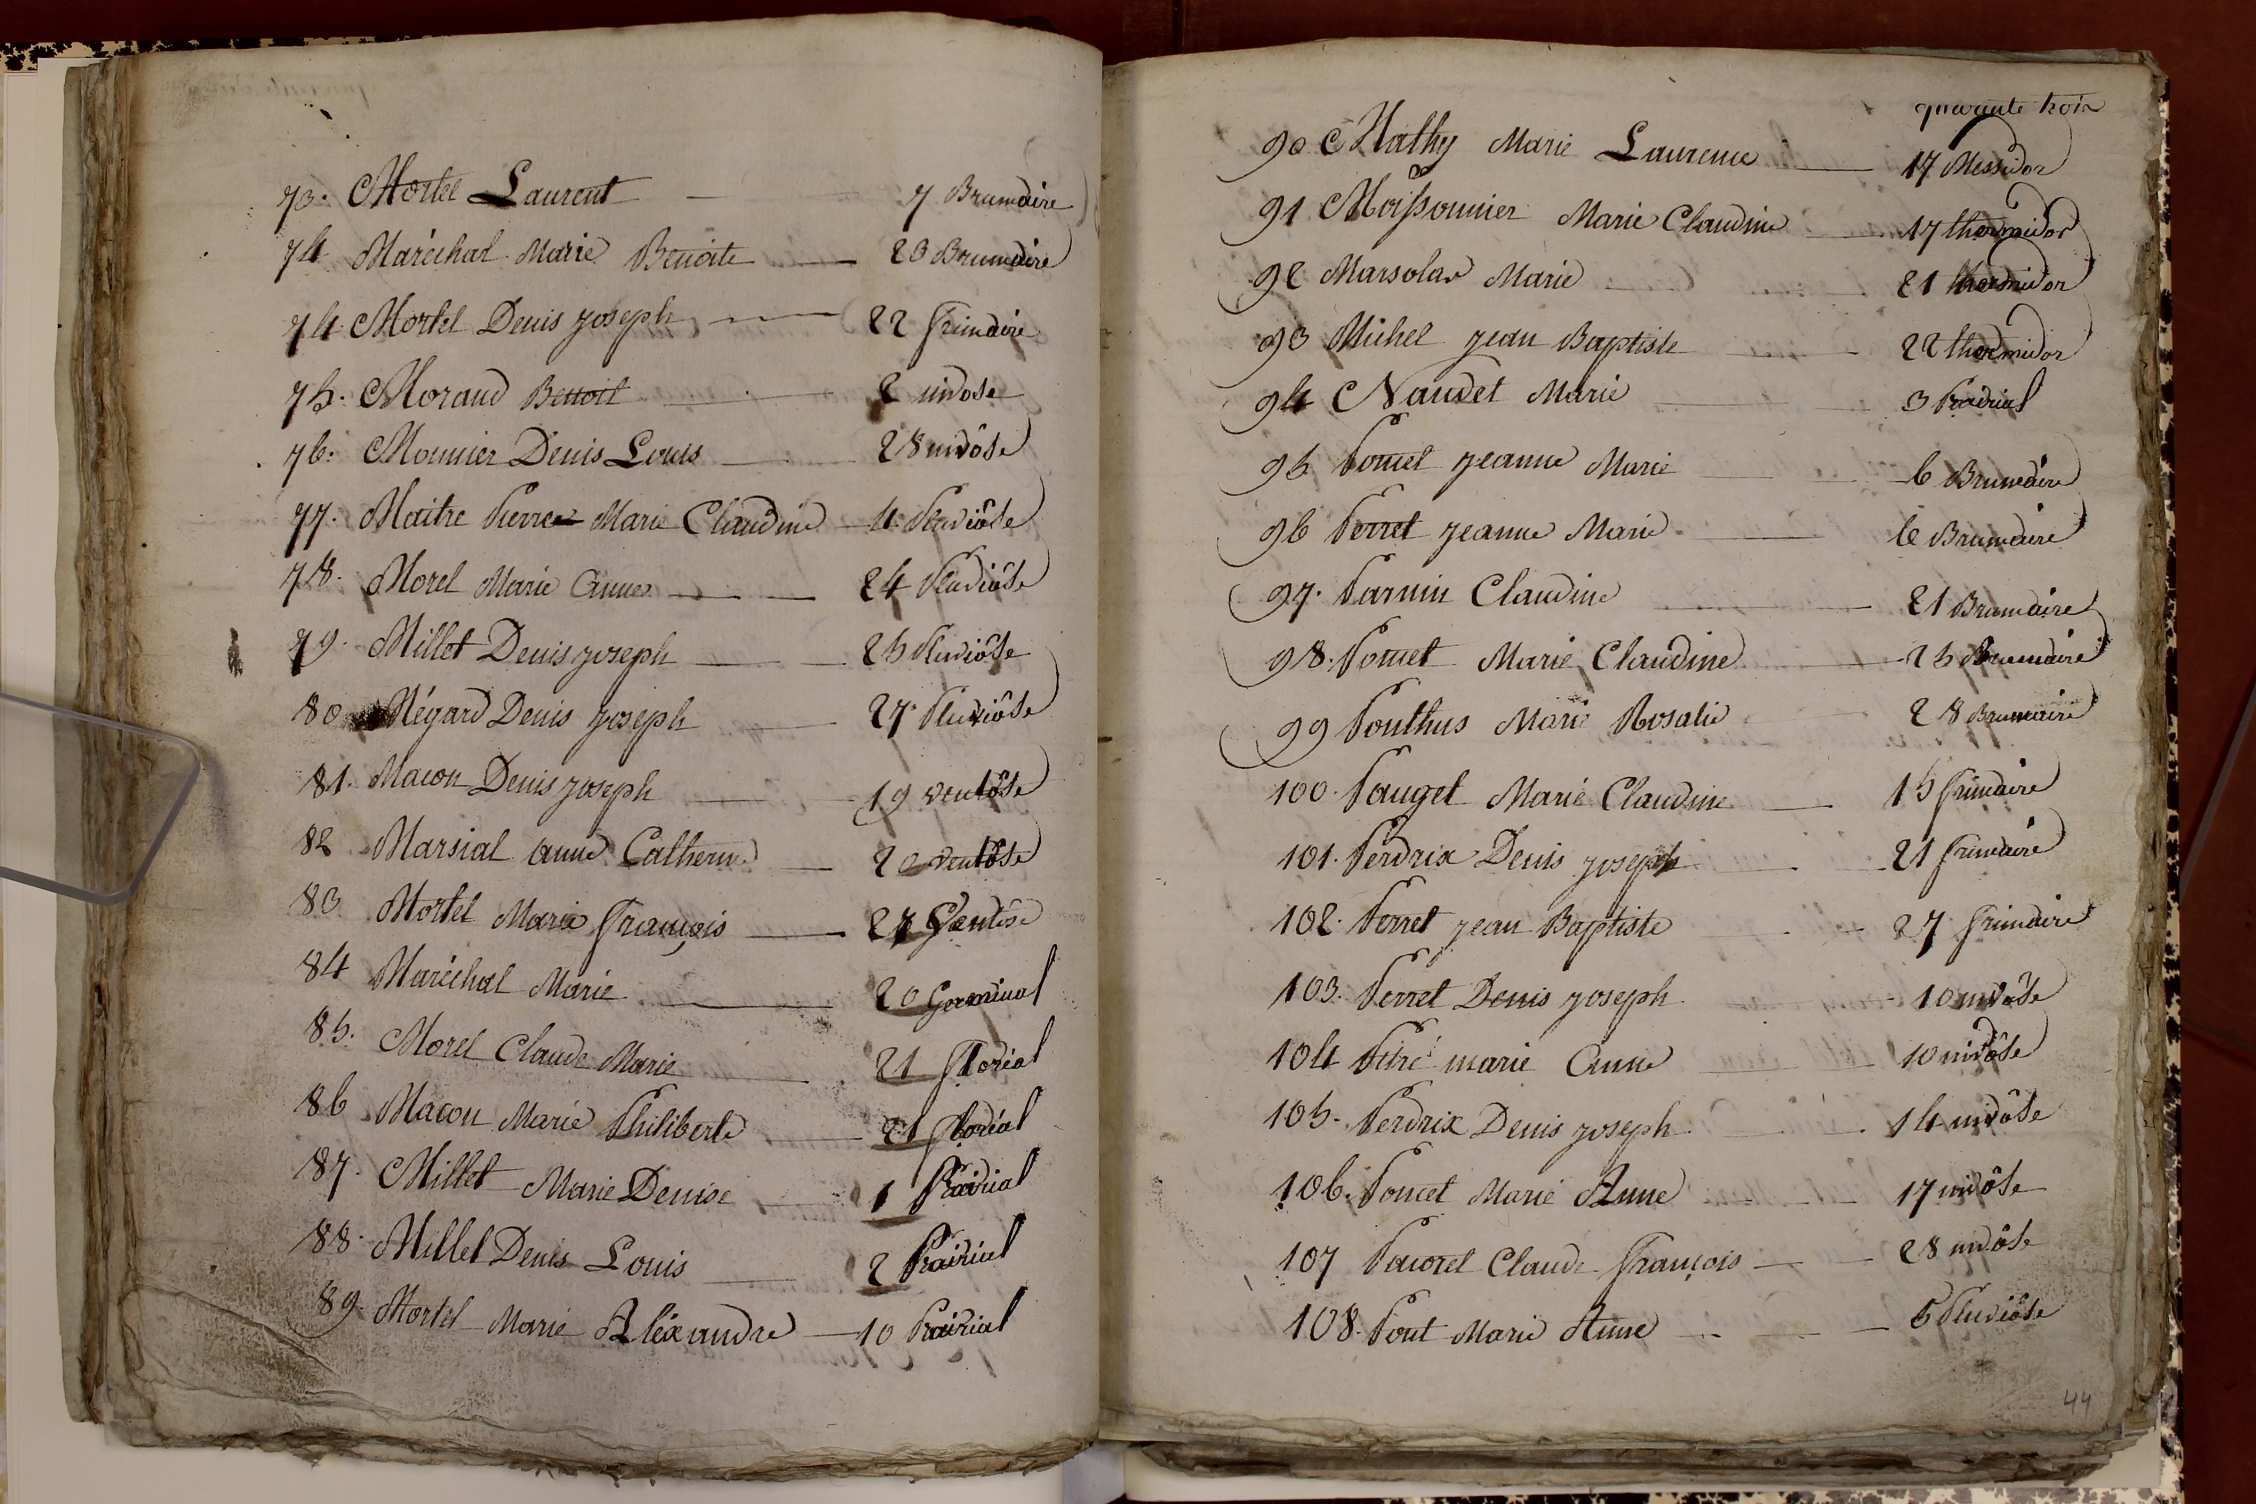 73. Mortel Laurent 7 Brumaire
74 Maréchal Marie Benoite 23 Brumaire
74 Mortel Denis Joseph 22 frimaire
75. Moraud Benoit 2 nivose
76. Mounier Denis Louis 28 nivôse
77. Maitre Pierre Marie Claudine 4 Pluviôse
78. Morel Marie Anne 24 Pluviôse
79. Millet Denis Joseph 25 Pluviôse
80 Mégard Denis Joseph 27 Pluviôse
81. Macon Denis Joseph 19 ventôse
82 Marsial anne Catherine 20 ventôse
83 Mortel Marie François 27 Ventôse
84 Maréchal Marie 20 Germinal
85. Morel Claude Marie 21 floréal
86 Macon Marie Philiberte 21 floréal
87. Millet Marie Denise 1 Prairial
88. Millet Denis Louis 2 Prairial
89. Mortel Marie Aléxandre 10 Prairial
quarante trois
90 Mathy Marie Laurence 17 Messidor
91 Moissonnier Marie Claudine 17 thermidor
92 Marsolas Marie 21 thermidor
93 Michel Jean Baptiste 22 thermidor
94 Naudet Marie 3 Prairial
95 Poncet Jeanne Marie 6 Brumaire
96 Perret Jeanne Marie Brumaire
97. Parnin Claudine 21 Brumaire
98. Poncet Marie Claudine 25 Brumaire
99 Ponthus Marie Rosalie 28 Brumaire
100. Pauget Marie Claudine 15 frimaire
101. Perdrix Denis Joseph 21 frimaire
102. Perret Jean Baptiste 27 frimaire
103. Perret Denis Joseph 10 nivôse
104 Pitré marie Anne 10 nivôse
105. Perdrix Denis Joseph 14 nivôse
106. Poncet Marie Anne 17 nivôse
107 Pacorel Claude François 28 nivôse
108. Pont Marie Anne 5 Pluviôse
44